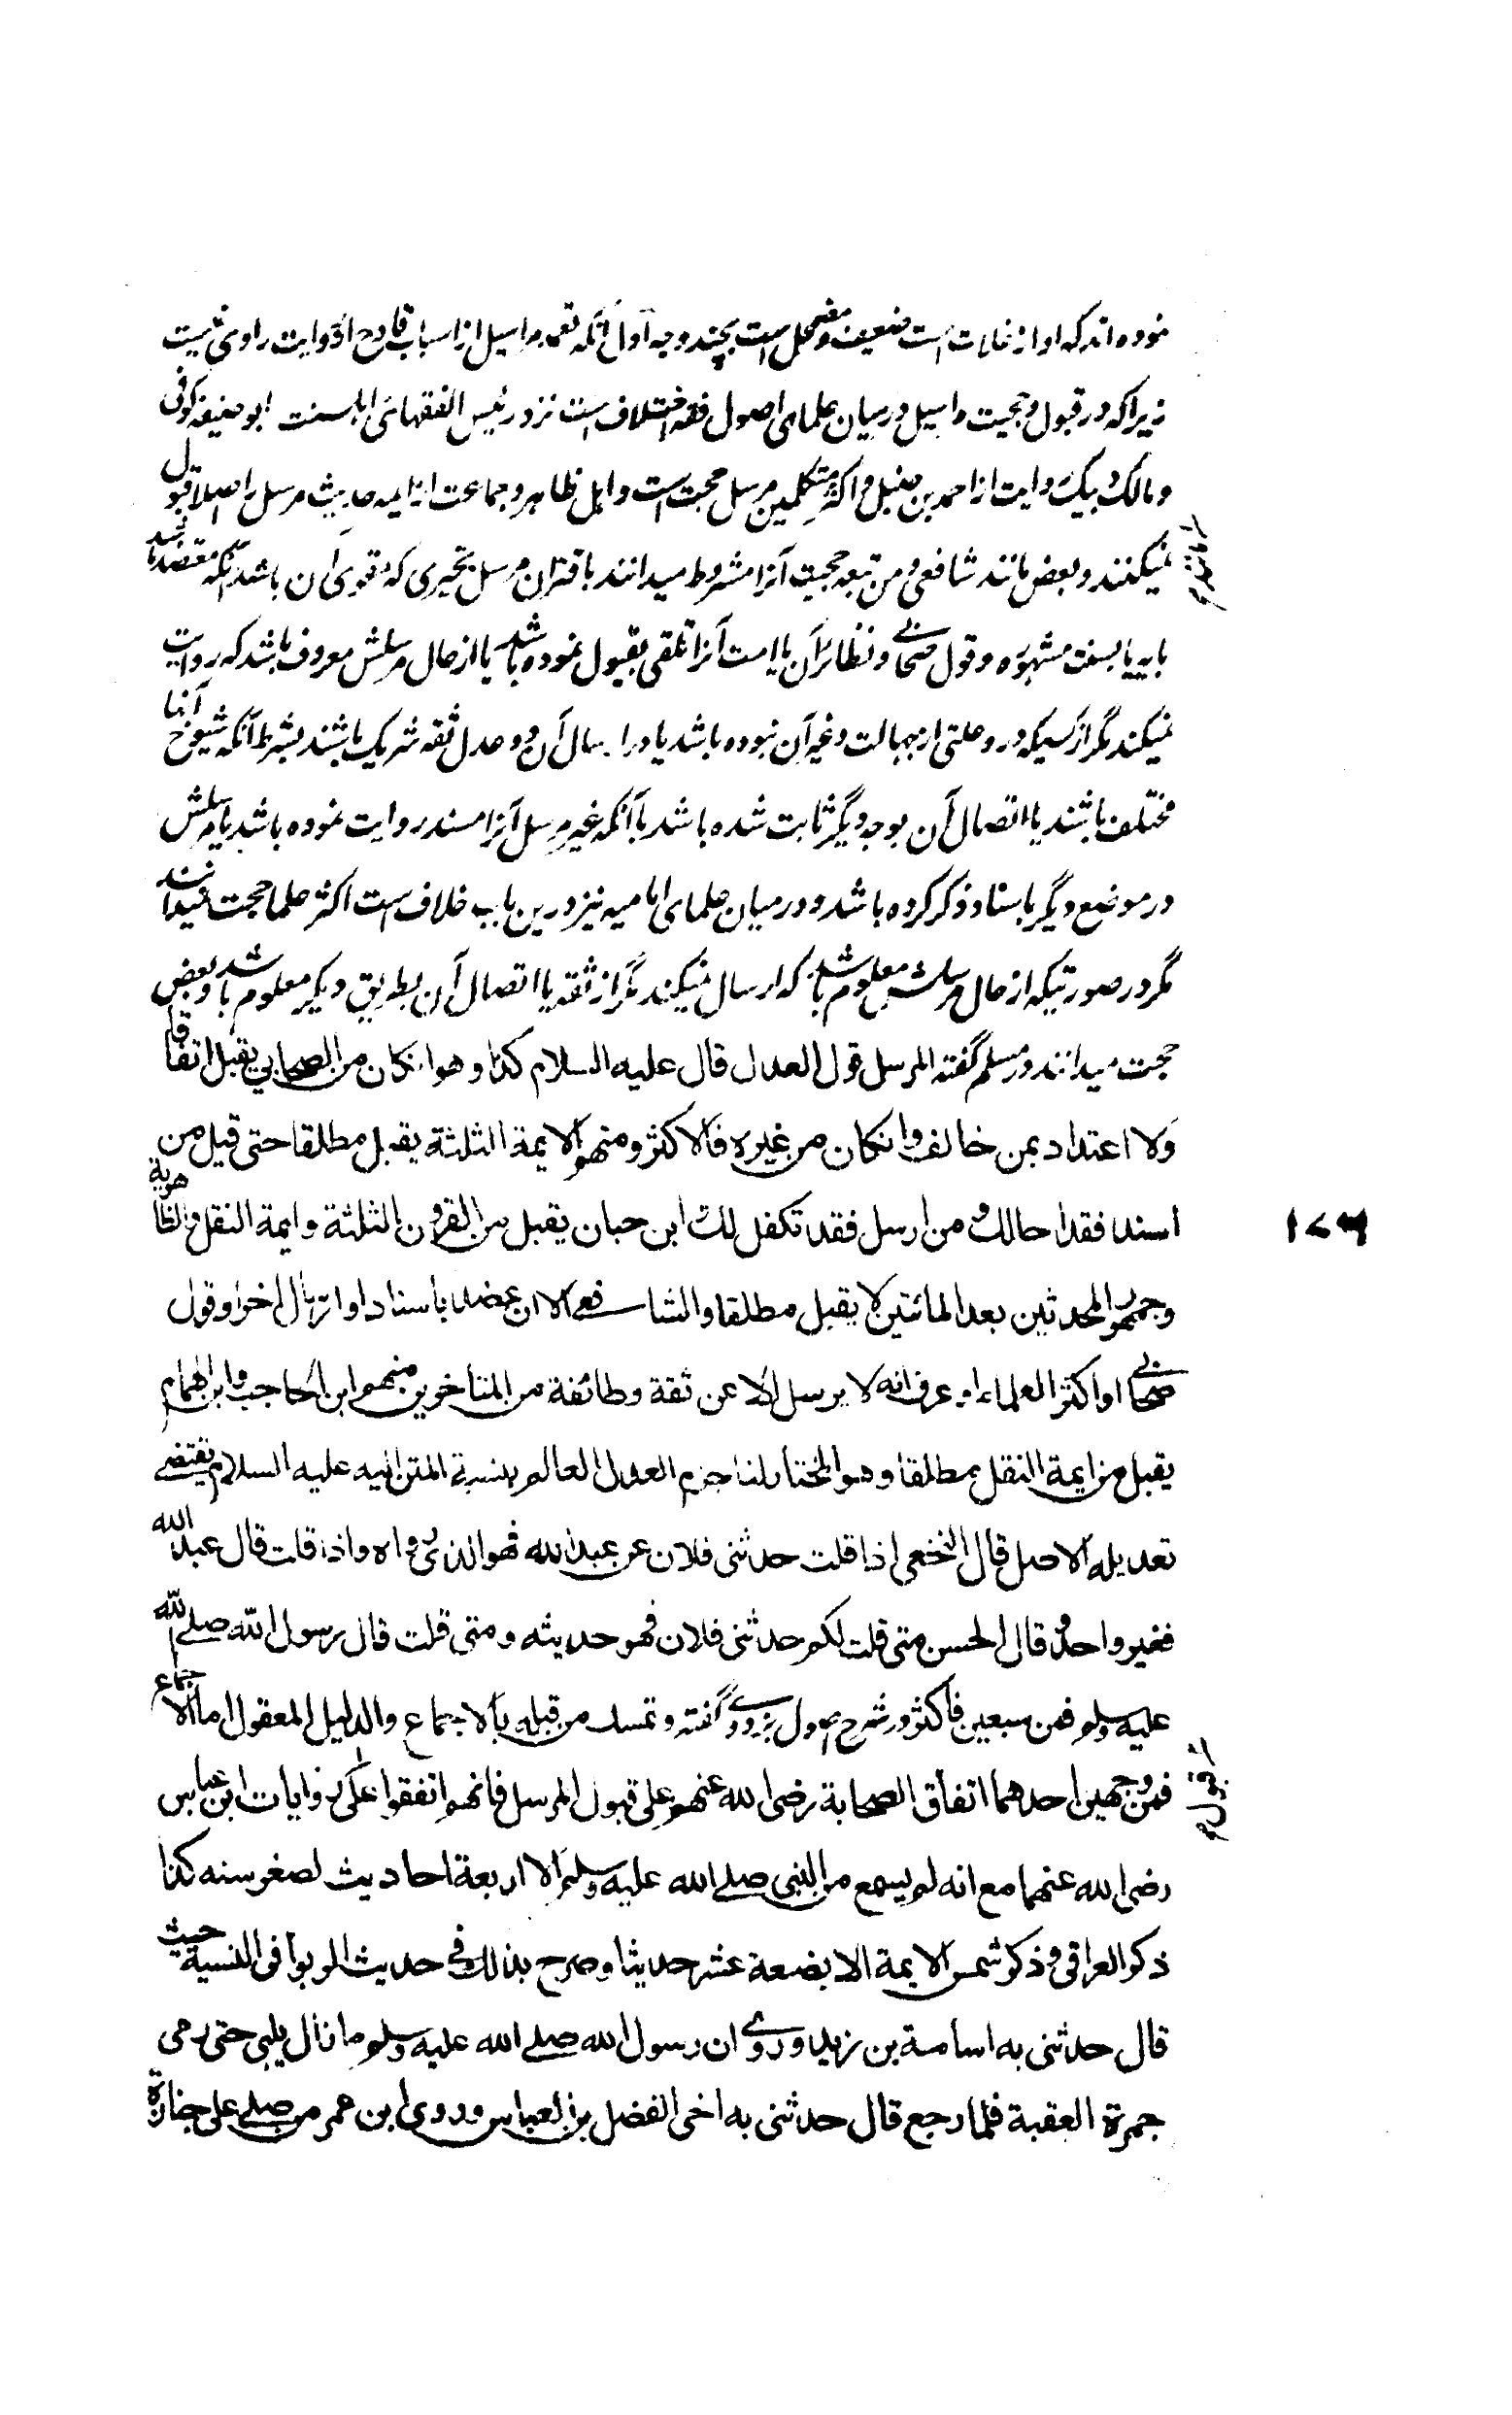 نموده اند که او از غایات است ضعیف و مضمحل است بچند وجه اول آنکه تعمد مراسیل از اسباب قادح در روایت راوی نیست
زیرا که در قبول و حجیت مراسیل در میان علمای اصول فقه اختلاف است نزد رئیس الفقهای اهلسنت ابو حنیفه کوفی
و مالک و بیک روایت از احمد بن حنبل و اکثر متکلمین مرسل حجت است و اهل ظاهر و جماعت امامیه حدیث مرسل را اصلا قبول
نمیکنند و بعض مانند شافعی و من تبعه حجیت آنرا مشروط میدانند باقتران مرسل بچیزی که مقوی آن باشد آنکه معتضد باشد
بایه یا بسنت مشهوره و قول صحابی و نظائر آن یا امت آنرا تلقی بقبول نموده باشد یا از حال مرسلش معروف باشد که روایت
نمیکند مگر از کسیکه درو علتی از جهالت و غیر آن نبوده باشد یا در ارسال آن دو عدل ثقه شریک باشند بشرط آنکه شیوخ آنها
مختلف باشند یا اتصال آن بوجه دیگر ثابت شده باشد یا آنکه غیر مرسل آنرا مسند روایت نموده باشد یا مرسلش
در موضع دیگر باسناد ذکر کرده باشد و در میان علمای امامیه نیز درین باب خلاف است اکثر علما حجت نمیدانند
مگر در صورتیکه از حال مرسلش معلوم باشد که ارسال نمیکند مگر از ثقه یا اتصال آن بطریق دیگر معلوم باشد و بعض
حجت میدانند در مسلم گفته المرسل قول العدل قال علیه السلام کذا و هو انکان من الصحابي یقبل اتفاقا
ولا اعتداد بمن خالف وانکان من غیره فالاکثر ومنهم الایمة الثلثة یقبل مطلقا حتی قیل من
اسند فقد احالك ومن ارسل فقد تکفل لك ابن حبان یقبل من القرون الثلثة وایمة النقل والظاهریة
وجمهور المحدثین بعد المائتین لا یقبل مطلقا والشافعي الا ان عضد باسناد او ارسال اخر او قول
صحابي او اکثر العلماء او عرف انه لا یرسل الا عن ثقة وطائفة من المتاخرین منهم ابن الحاجب وابن الهمام
یقبل من ایمة النقل مطلقا وهو المختار لنا جزم العدل العالم بنسبة المتن الیه علیه السلام یقتضے
تعدیله الاصل قال النخعي اذا قلت حدثنی فلان عن عبدالله فهو الذی رواه واذا قلت قال عبدالله
فغیر واحد وقال الحسن متی قلت لکم حدثنی فلان فهو حدیثه ومتی قلت قال رسول الله صلے الله
علیه وسلم فمن سبعین فاکثر در شرح اصول بزدوی گفته وتمسك من قبله بالاجماع والدلیل المعقول اما الاجماع
فمن وجهین احدهما اتفاق الصحابة رضی الله عنهم علی قبول المرسل فانهم اتفقوا علی روایات ابن عباس
رضی الله عنهما مع انه لم یسمع من النبی صلے الله علیه وسلم الا اربعة احادیث لصغر سنه کذا
ذکر العراقی وذکر شمس الایمة الا بضعة عشر حدیثا وصرح بذلك فی حدیث الربوا فی النسیة حیث
قال حدثنی به اسامة بن زید وروی ان رسول الله صلے الله علیه وسلم ما زال یلبی حتی رمی
جمرة العقبة فلما رجع قال حدثنی به اخی الفضل بن العباس وروی ابن عمر من صلے علی جنازة
۱۷۶